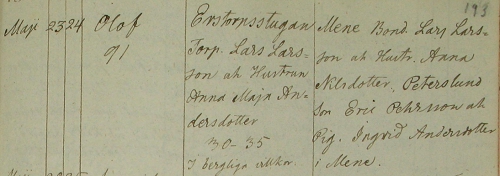 193
Maji 23 24 Olof
91
Erstorpsstugan
Torp. Lars Lars-
son ah Hustrun
Anna Maja An-
dersdotter
30-35
I bergliga vilkor.
Mene Bond. Lars Lars-
son ah Hustr. Anna
Nilsdotter, Peterslund
Son Eric Pehrsson ah
Pig. Ingrid Andersdotter
i Mene.